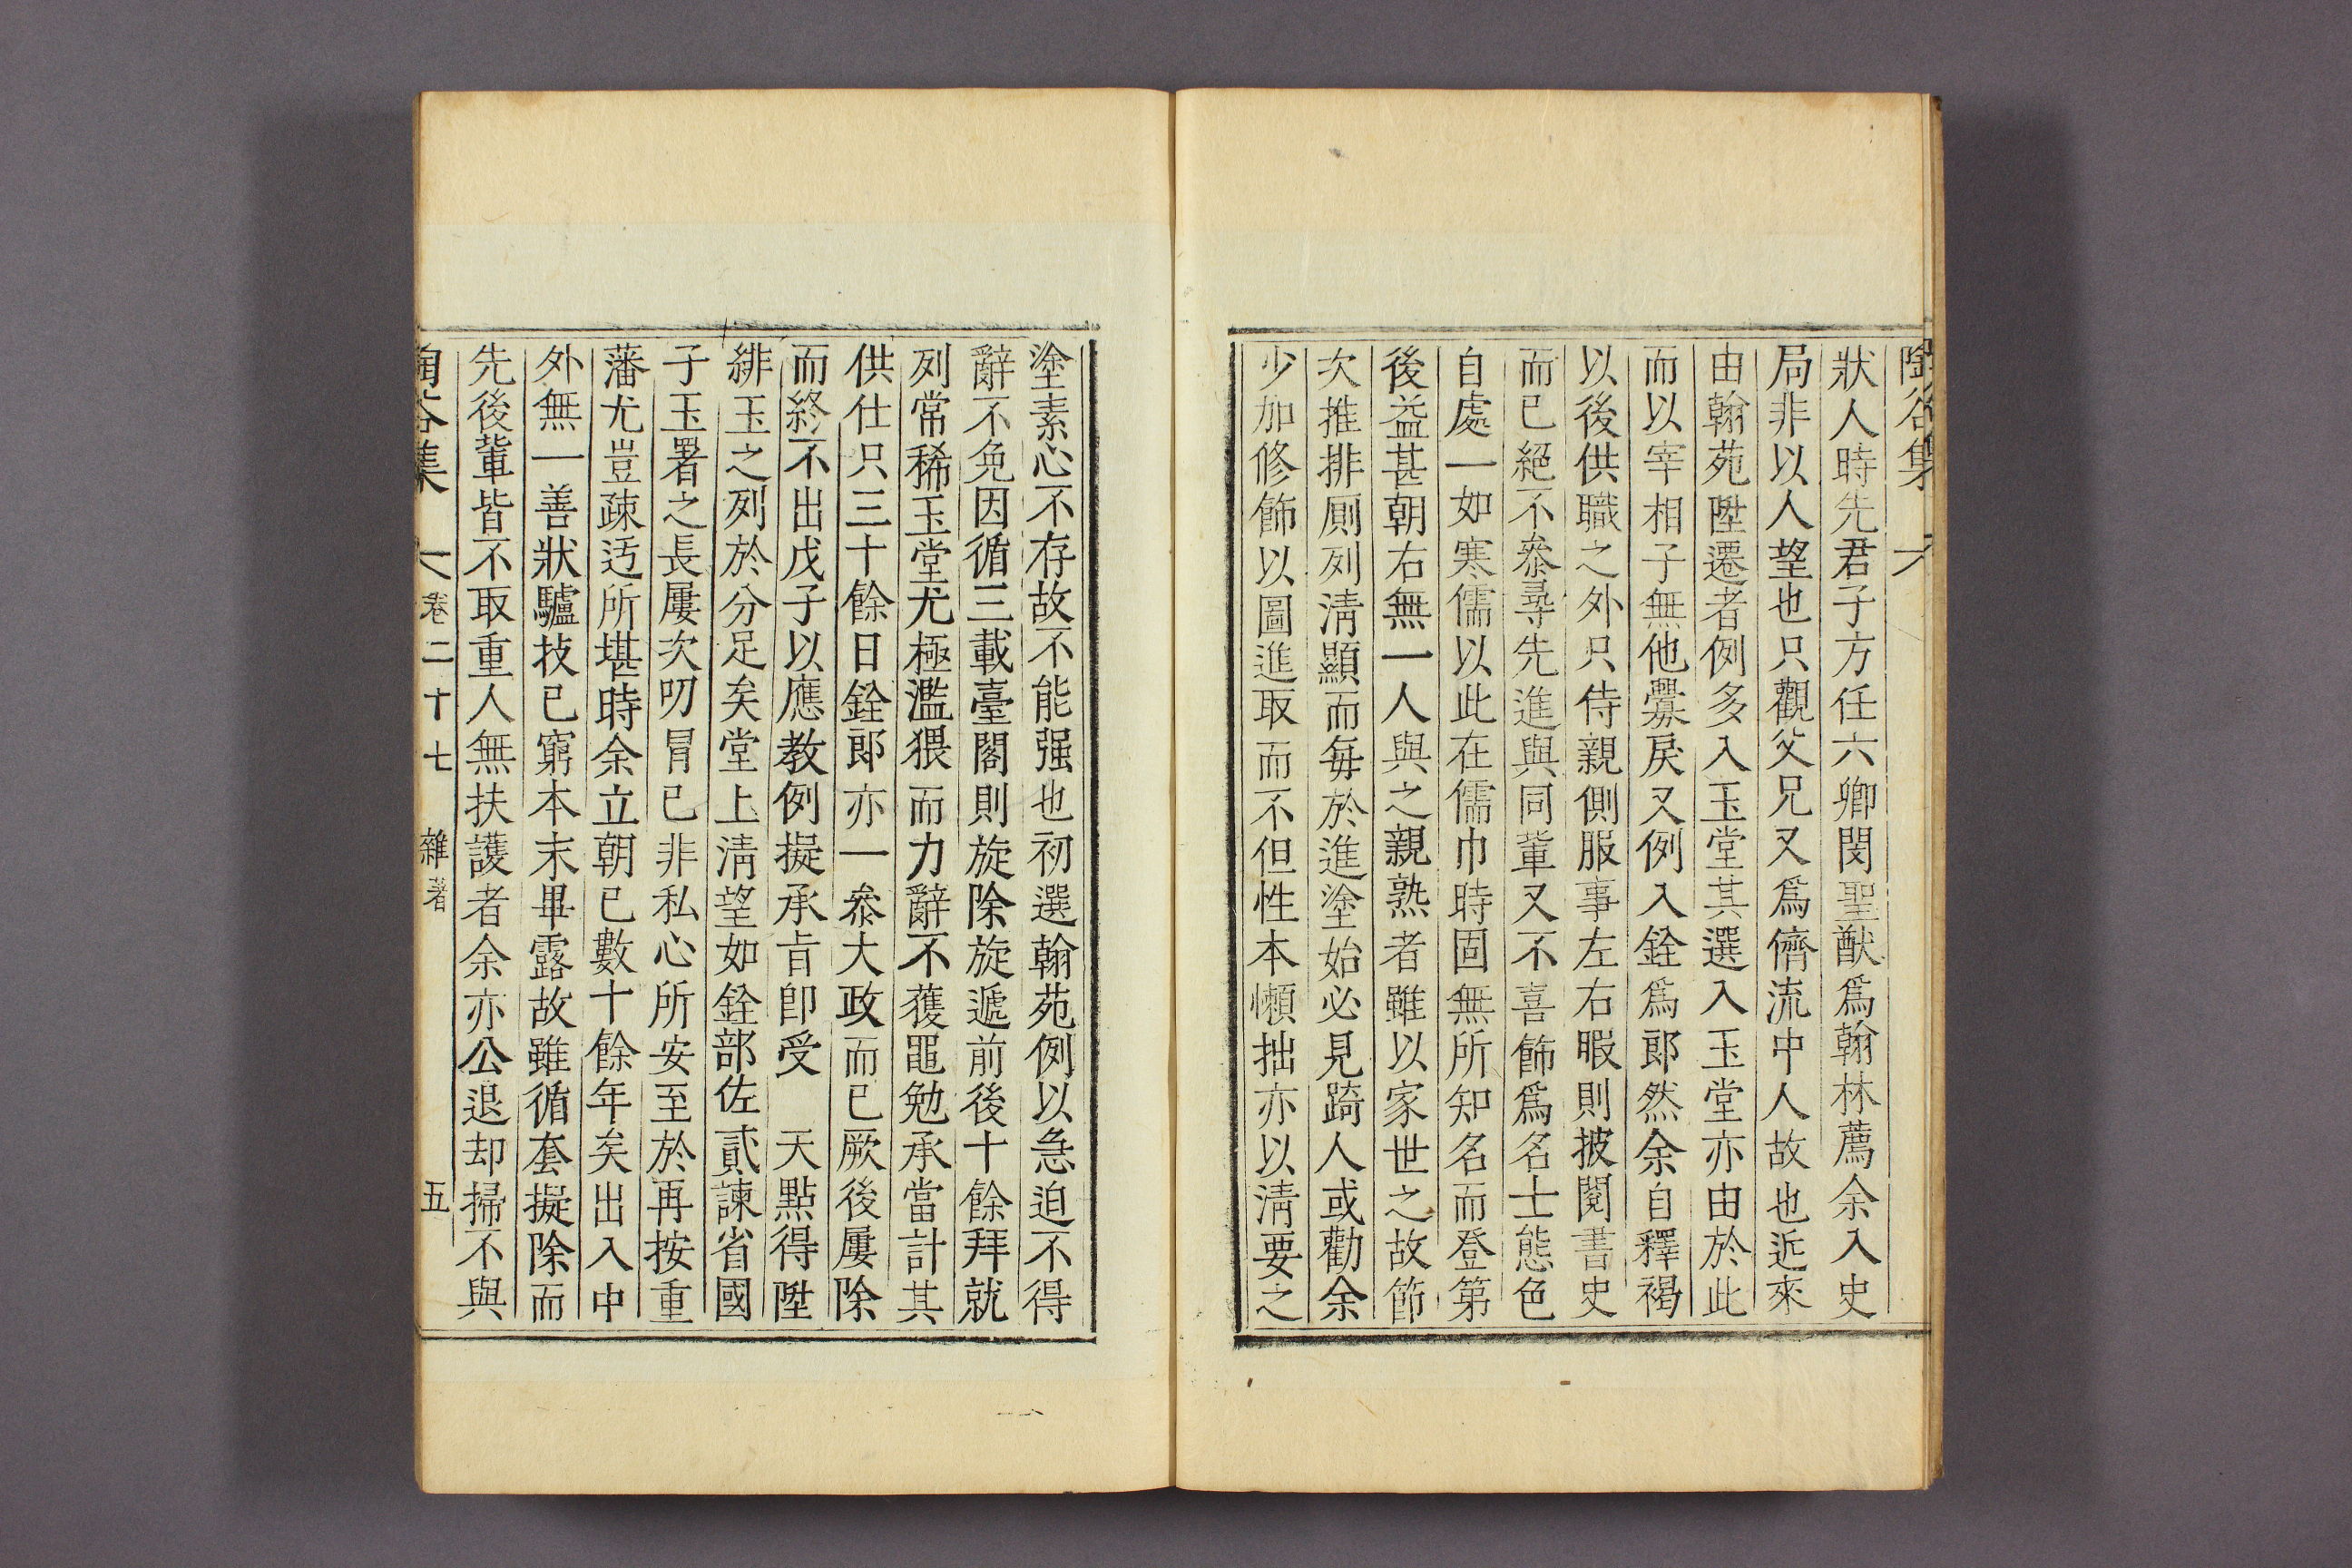 陶谷集
狀人時先君子方任六卿閔聖猷爲翰林薦余入史
局非以人望也只觀父兄又爲儕流中人故也近來
由翰苑陞遷者例多入玉堂其選入玉堂亦由於此
而以宰相子無他釁戾又例入銓爲郎然余自釋褐
以後供職之外只侍親側服事左右暇則披閱書史
而已絕不叅尋先進與同輩又不喜飾爲名士態色
自處一如寒儒以此在儒巾時固無所知名而登第
後益甚朝右無一人與之親熟者雖以家世之故節
次推排厠列淸顯而每於進塗始必見踦人或勸余
少加修飾以圖進取而不但性本懶拙亦以淸要之
塗素心不存故不能强也初選翰苑例以急迫不得
辭不免因循三載臺閣則旋除旋遞前後十餘拜就
列常稀玉堂尤極濫猥而力辭不獲黽勉承當計其
供仕只三十餘日銓郎亦一叅大政而已厥後屢除
而終不出戊子以應教例擬承旨卽受　天點得陞
緋玉之列於分足矣堂上淸望如銓部佐貳諫省國
子玉署之長屢次叨冐已非私心所安至於再按重
藩尤豈疎迃所堪時余立朝已數十餘年矣出入中
外無一善狀驢技已窮本末畢露故雖循套擬除而
先後輩皆不取重人無扶護者余亦公退却掃不與
陶谷集　卷二十七　雜著　五